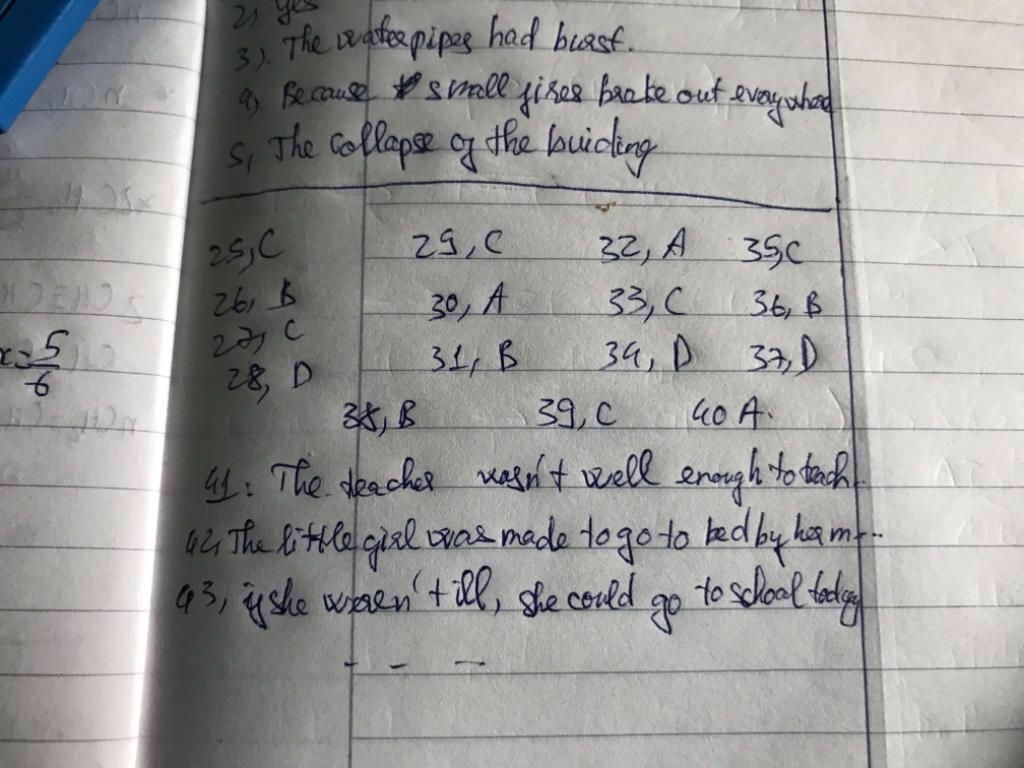 2, yes
3). The water pipes had burst.
4). Because small fires brake out everywhere
5, The collapse of the buiding
25, C 29, C 32, A 35, C
26, B 30, A 33, C 36, B
27, C 31, B 34, D 37, D
28, D
38, B 39, C 40 A.
41: The teacher wasn't well enough to teach.
42, The little girl was made to go to bed by her m...
43, if she weren't ill, she could go to school today
- - -
x = 5/6